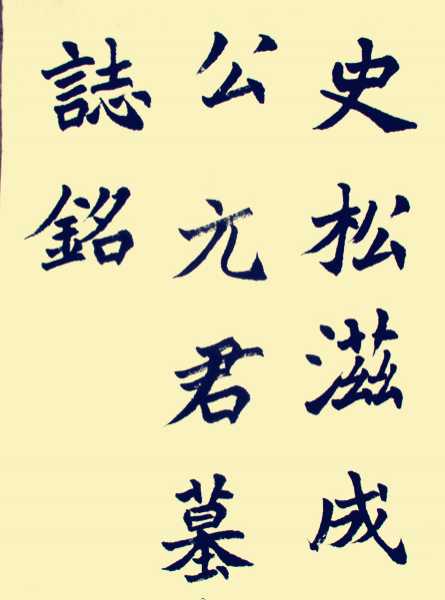 史松滋成
公亢君墓
誌銘